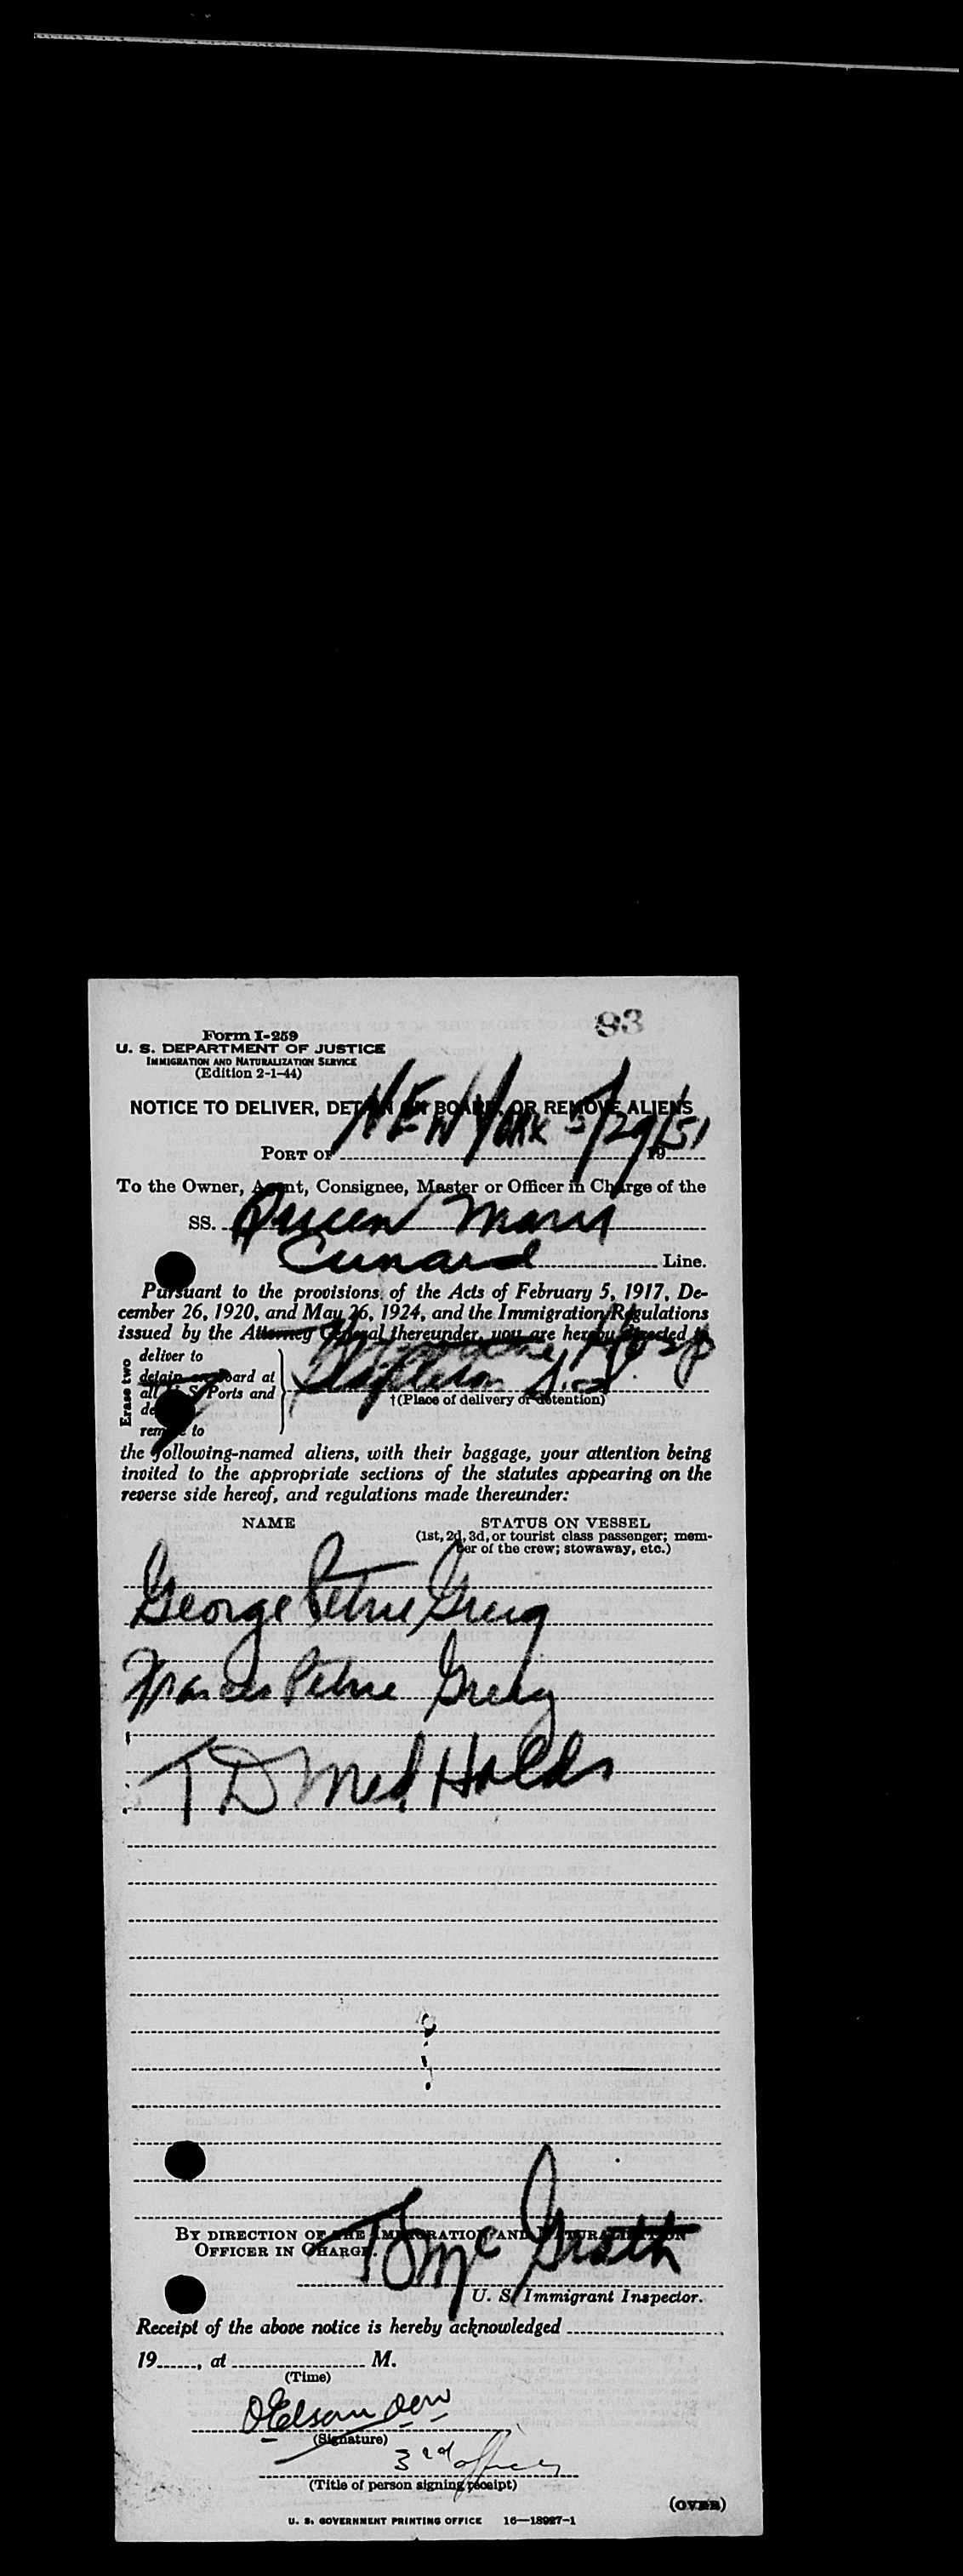 93
Form I-259
U. S. DEPARTMENT OF JUSTICE
IMMIGRATION AND NATURALIZATION SERVICE
(Edition 2-1-44)
NOTICE TO DELIVER, DETAIN ON BOARD, OR REMOVE ALIENS
PORT OF NEW YORK 5/29/51 19
To the Owner, Agent, Consignee, Master or Officer in Charge of the
SS. Queen Mary
Cunard Line.
Pursuant to the provisions of the Acts of February 5, 1917, De-
cember 26, 1920, and May 26, 1924, and the Immigration Regulations
issued by the Attorney General thereunder, you are hereby directed to
Erase two
deliver to
detain on board at
all U S Ports and
remove to
Hosp
Stapleton S.I.
†(Place of delivery or detention)
the following-named aliens, with their baggage, your attention being
invited to the appropriate sections of the statutes appearing on the
reverse side hereof, and regulations made thereunder:
NAME STATUS ON VESSEL
(1st, 2d, 3d, or tourist class passenger; mem-
ber of the crew; stowaway, etc.)
George Petrie Greig
Frances Petrie Greig
T D Med Holds
BY DIRECTION OF THE IMMIGRATION AND NATURALIZATION
OFFICER IN CHARGE.
McGrath
U. S. Immigrant Inspector.
Receipt of the above notice is hereby acknowledged
19, at M.
(Time)
(Signature)
3rd officer
(Title of person signing receipt)
(OVER)
U. S. GOVERNMENT PRINTING OFFICE 16—18987-1